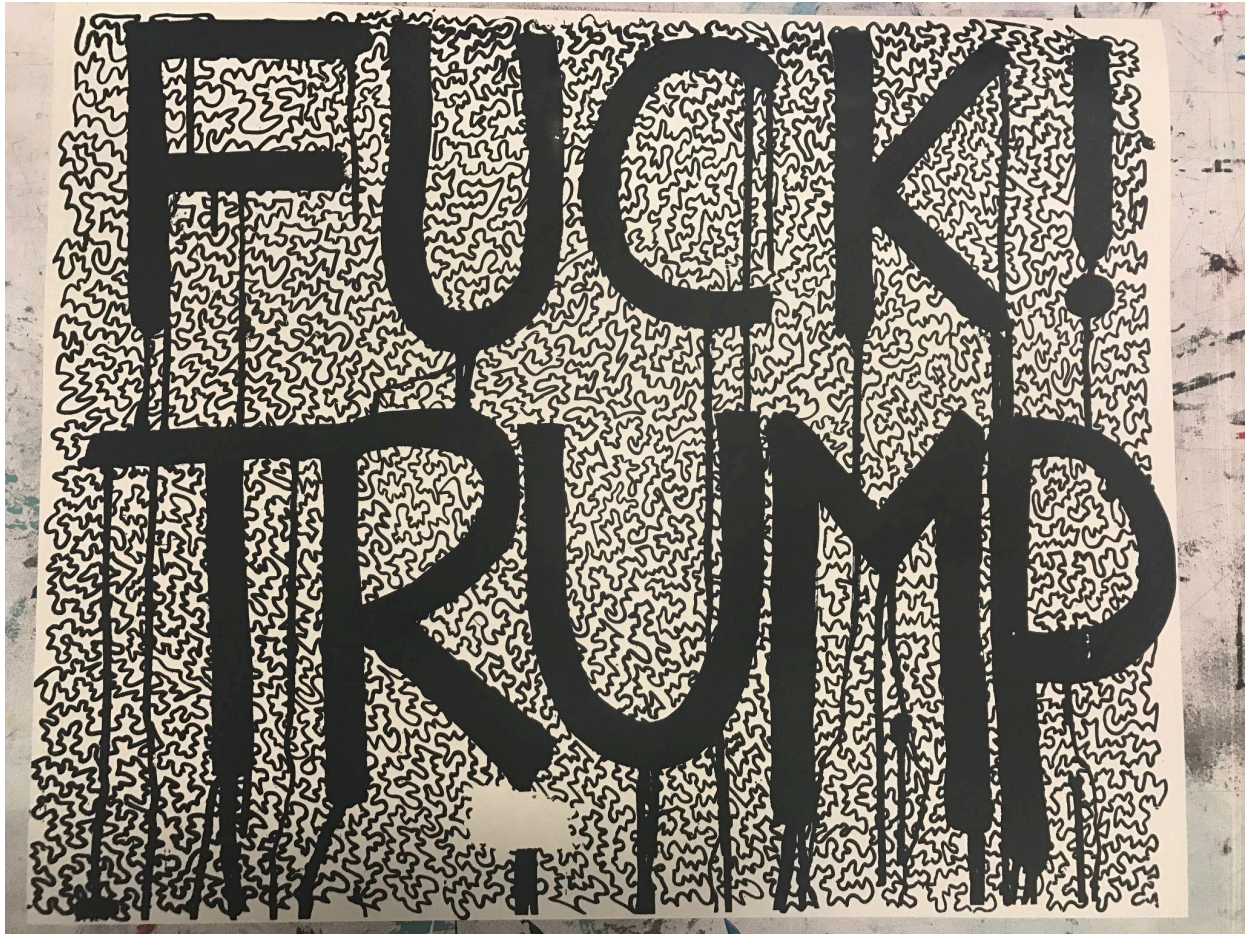 FUCK!
TRUMP